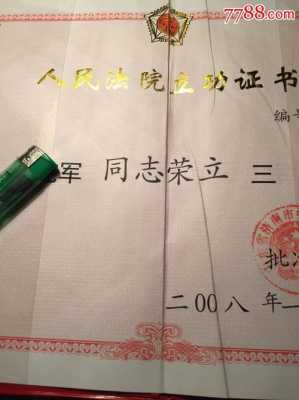 7788.com
人民法院立功证书
编号
军 同志荣立 三
批准
二〇〇八年一